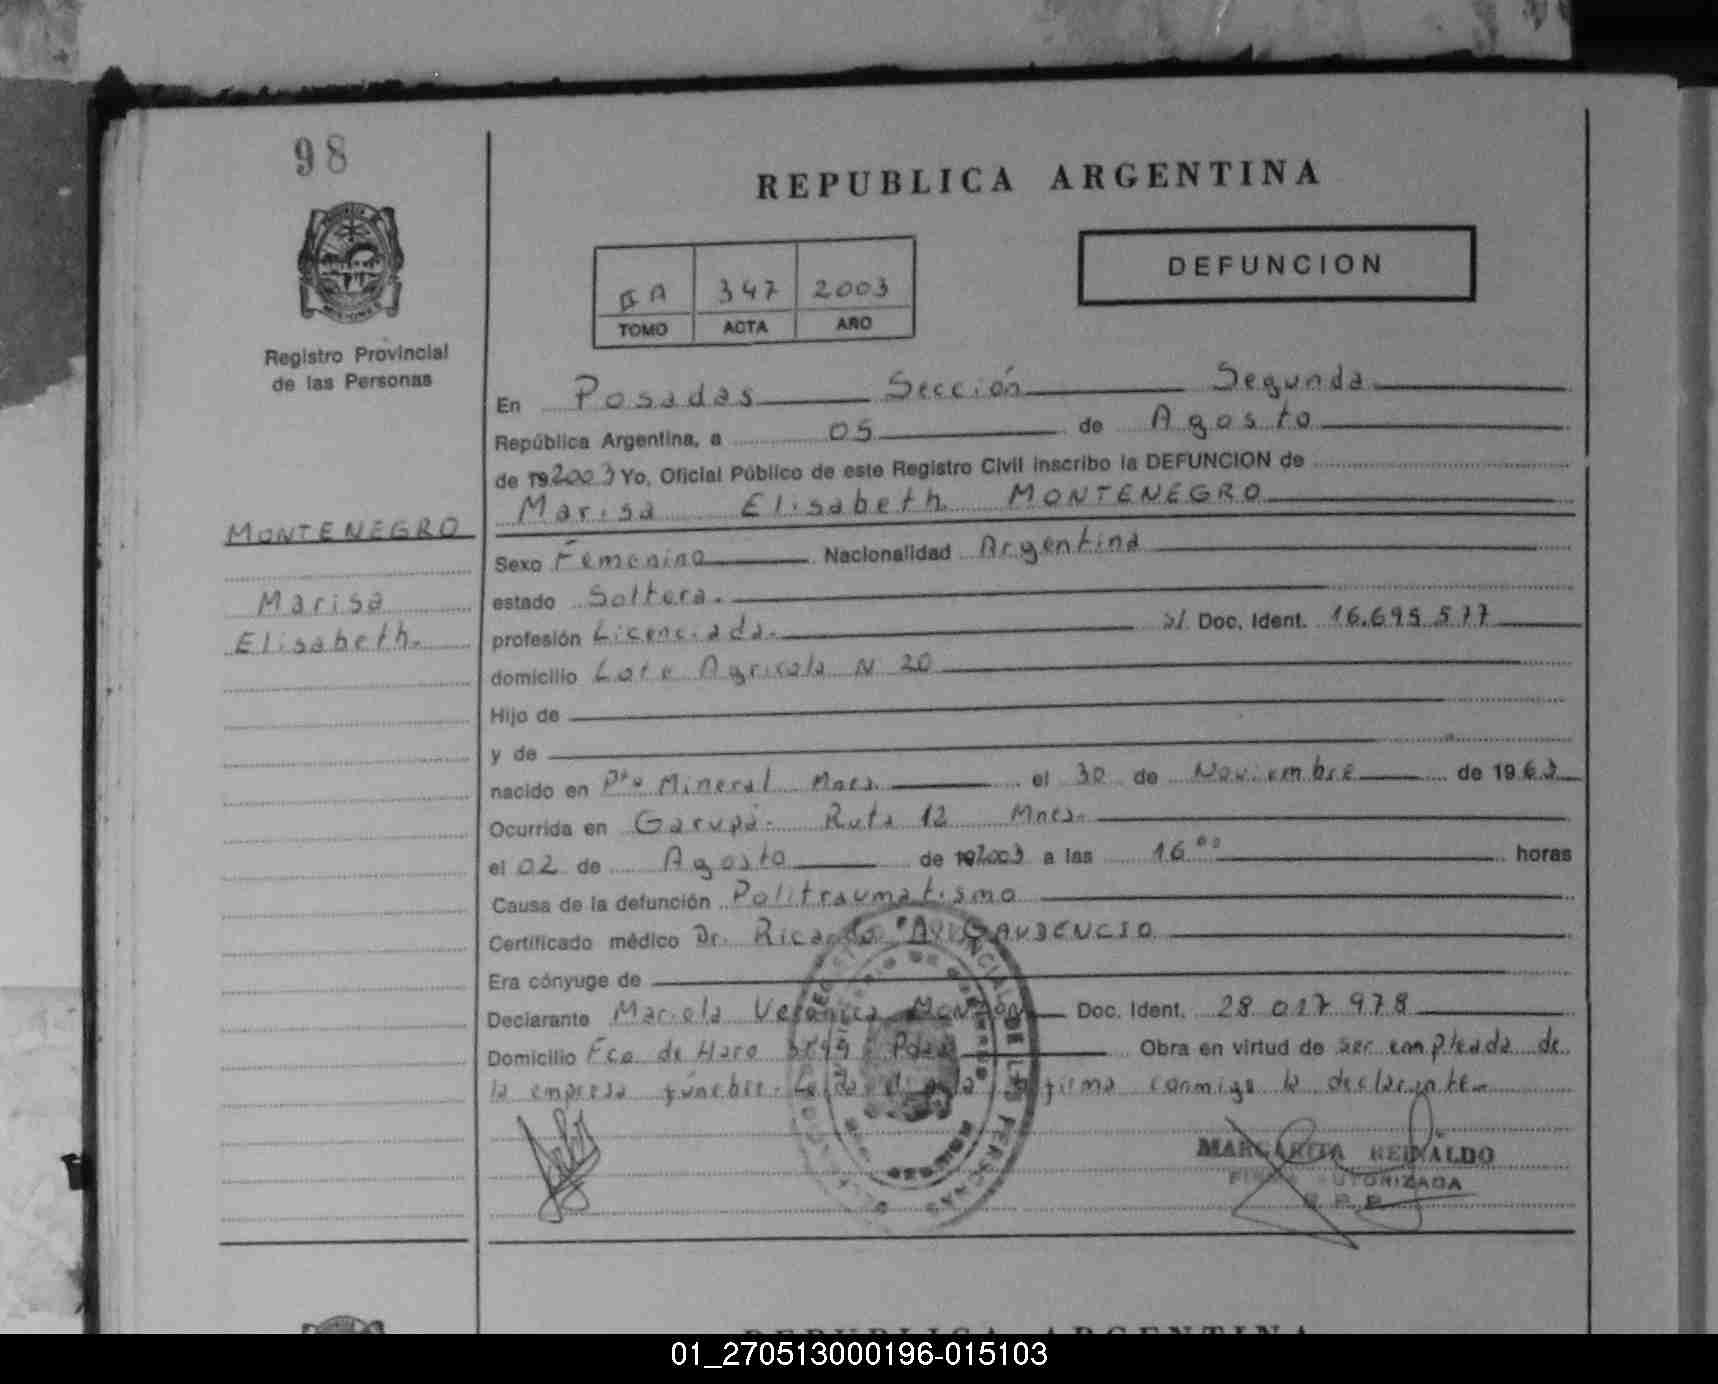 98
REPUBLICA ARGENTINA
DEFUNCION
II A 347 2003
TOMO ACTA AÑO
Registro Provincial
de las Personas
En Posadas Sección Segunda
República Argentina, a 05 de Agosto
de 192003 Yo, Oficial Público de este Registro Civil inscribo la DEFUNCION de
Marisa Elisabeth MONTENEGRO
MONTENEGRO
Marisa
Elisabeth.
Sexo Femenino Nacionalidad Argentina
estado Soltera.
profesión Licenciada. s/ Doc. Ident. 16.695.577
domicilio Lote Agricola N 20
Hijo de
y de
nacido en Pto Mineral Mnes. el 30 de Noviembre de 1963
Ocurrida en Garupá. Ruta 12 Mnes.
el 02 de Agosto de 192003 a las 16 00 horas
Causa de la defunción Politraumatismo
Certificado médico Dr. Ricardo A. GAUDENCIO
Era cónyuge de
Declarante Mariela Verónica MONZON Doc. Ident. 28 027 978
Domicilio Fco de Haro Pdas Obra en virtud de ser empleada de
la empresa fúnebre. Leida el acta firma conmigo la declarante.
MARGARITA REINALDO
FIRMA AUTORIZADA
R. P. P.
REPUBLICA ARGENTINA
01_270513000196-015103